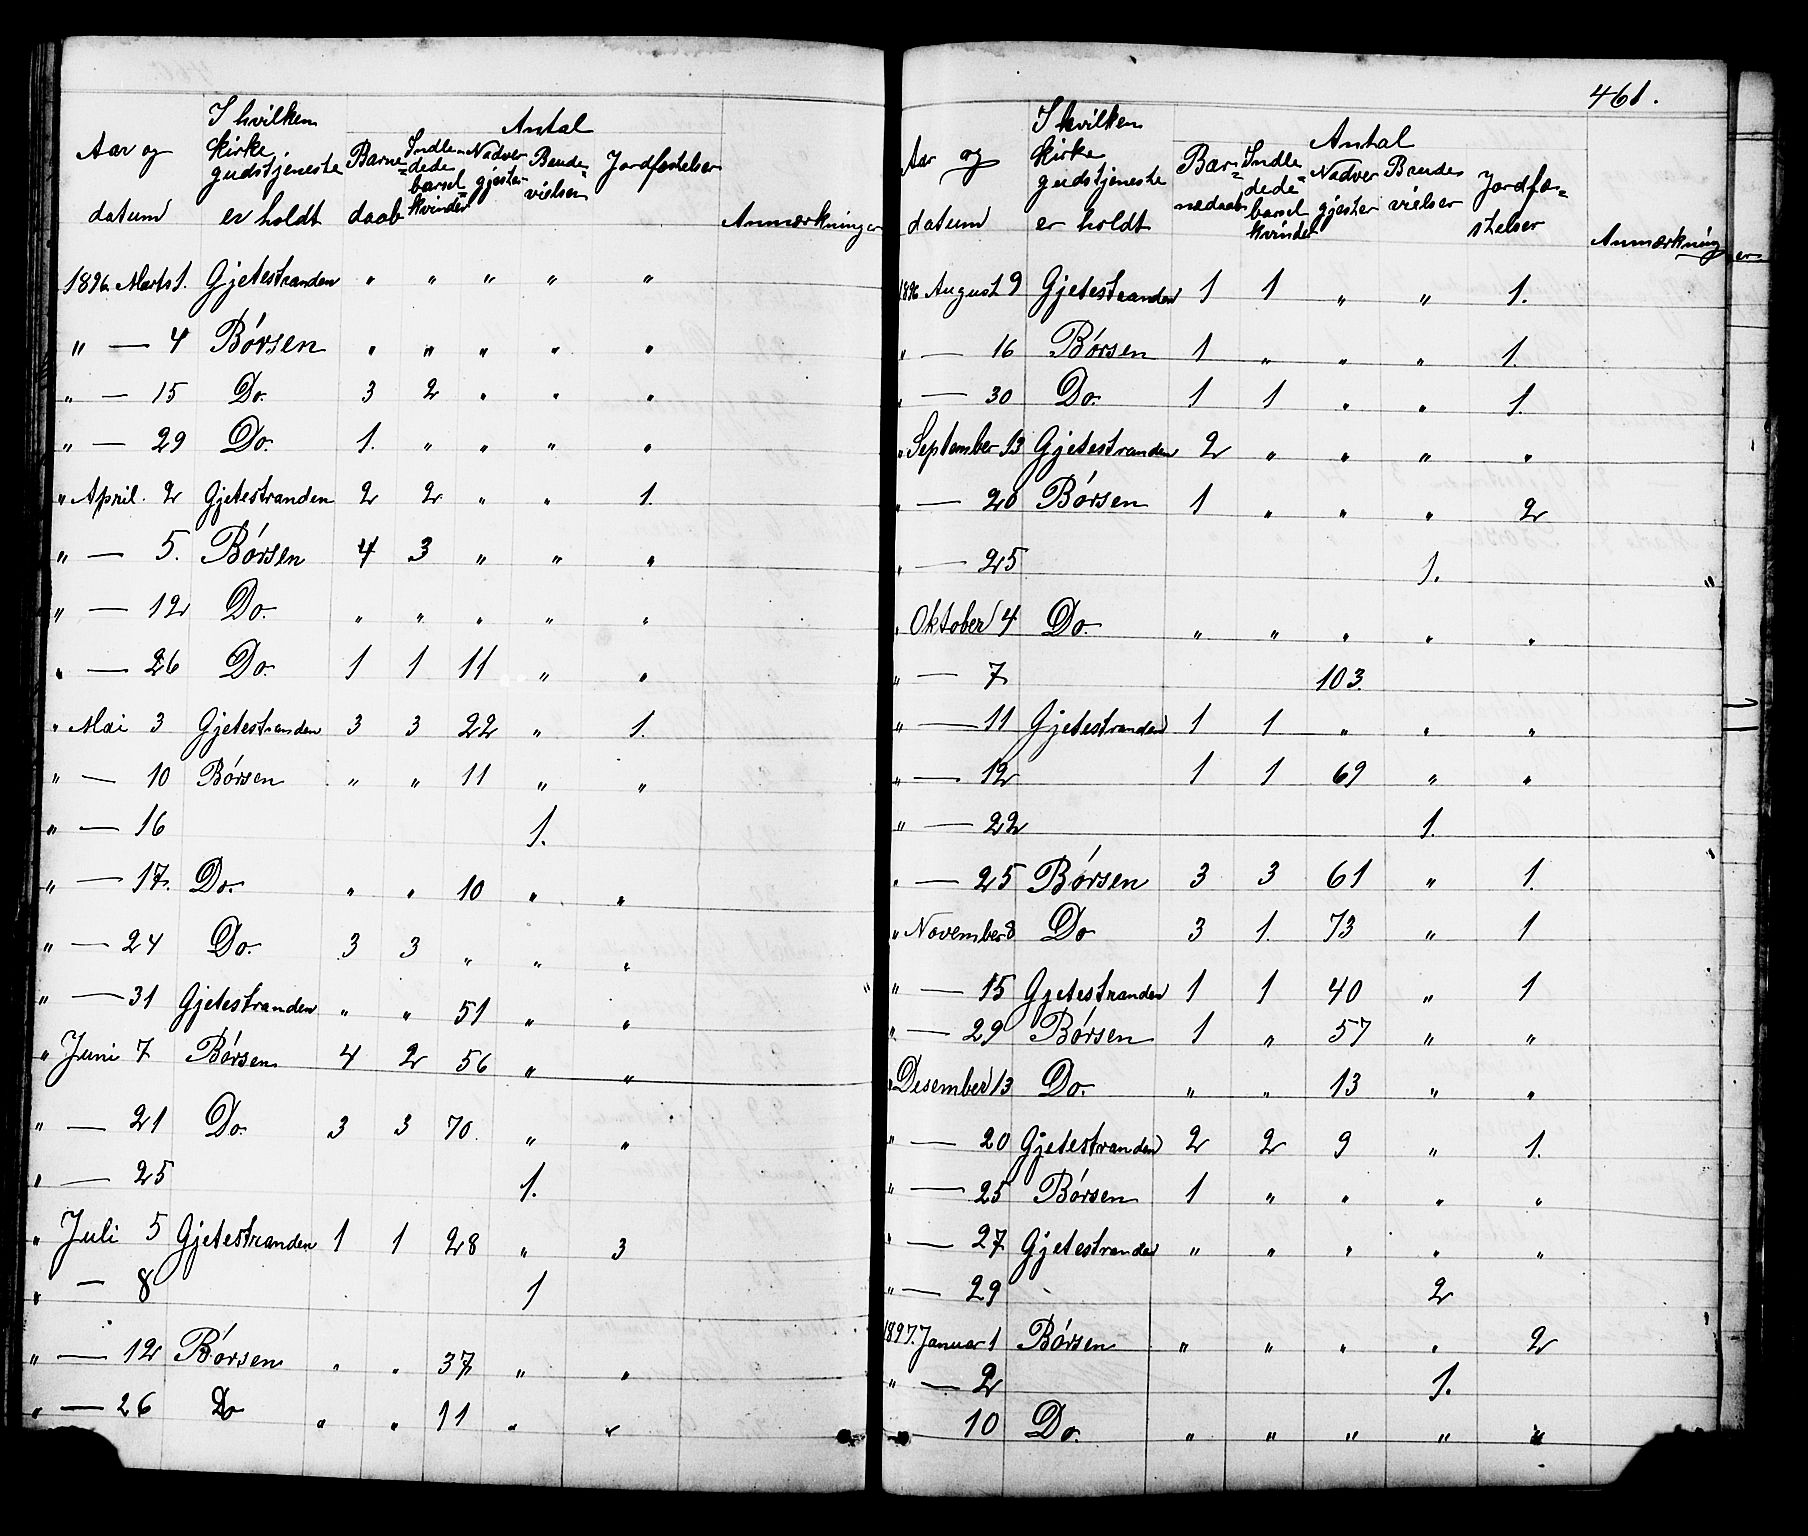 Aar og datum | I hvilken kirke gudstjeneste er holdt | Antal | Barne=daab | Indle=dede barsel=kvinder | Nadver gjester | Brude=vielser | Jordfæstelser | Anmærkninger
1896. Marts 1. Gjetestranden " " " " "
" — 4 Børsen " " " " "
" — 15 Do. 3 2 " " "
" — 29 Do. 1. " " " "
" April. 2 Gjetestranden 2 2 " " 1.
" — 5. Børsen 4 3 " " "
" — 12 Do. " " " " "
" — 26 Do. 1 1 11 " "
" Mai 3 Gjetestranden 3 3 22 " 1.
" — 10 Børsen " " 11 " "
" — 16 1.
" — 17. Do. " " 10 " "
" — 24 Do. 3 3 " " "
" — 31 Gjetestranden " " 51 " "
" Juni 7 Børsen 4 2 56 " "
" — 21 Do. 3 3 70. " "
" — 25 1.
" Juli 5 Gjetestranden 1 1 28 " 3
" — 8 1
" — 12 Børsen " " 37 " "
" — 26 Do " " 11 " "
461.
Aar og datum | I hvilken kirke gudstjeneste er holdt | Antal | Bar=nedaab | Indle=dede barsel kvinder | Nadver gjester | Brudevielser | Jordfæ=stelser | Anmærkninger
1896 August 9 Gjetestranden 1 1 " " 1.
" — 16 Børsen 1 " " " 1.
" — 30 Do. 1 1 " " 1.
" September 13 Gjetestranden 2 " " " "
" — 20 Børsen 1 " " " 2
" — 25 1. "
" Oktober 4 Do. " " " " "
" — 7 103.
" — 11 Gjetestranden 1 1 " " "
" — 12 1 1 69 " "
" — 22 1.
" — 25 Børsen 3 3 61 " 1.
" November 8 Do 3 1. 73 " 1
" — 15 Gjetestranden 1 1 40 " 1
" — 29 Børsen 1 " 57 " "
" Desember 13 Do. " " 13 " "
" — 20 Gjetestranden 2 2 9 " 1.
" — 25 Børsen 1 " " " "
" — 27 Gjetestranden " " " " "
" — 29 2
1897. Januar 1 Børsen " " " " 2
" — 2 1.
— 10 Do. " " " " "